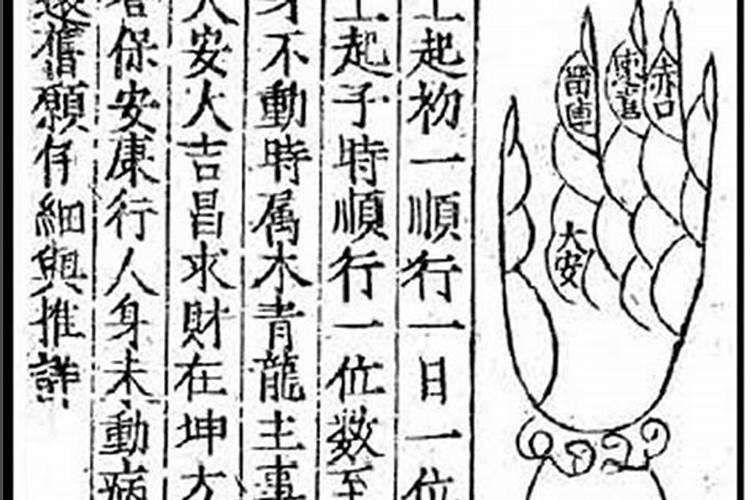 赤口
速喜
留連
大安
上起初一順行一日一位
上起子時順行一位数至
身不動時属木青龍主事
大安大吉昌求財在坤方
者保安康行人身未動病
還舊願仔細與推詳